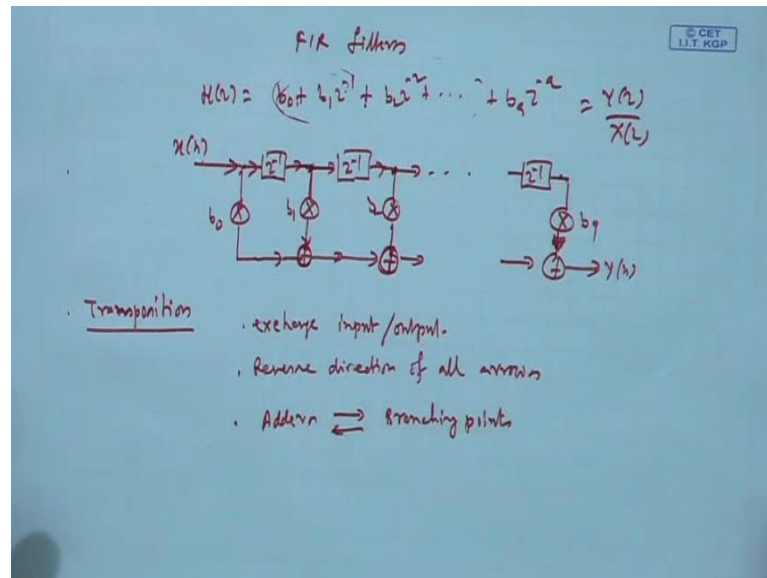 FIR filters
© CET
I.I.T. KGP
H(z) = (b0 + b1 z^-1) + b2 z^-2 + ... + bq z^-q = Y(z) / X(z)
x(n)
z^-1 z^-1 ... z^-1
b0 b1 b2 bq
+ + + y(n)
Transposition
. exchange input/output.
. Reverse direction of all arrows
. Adders ⇄ Branching points